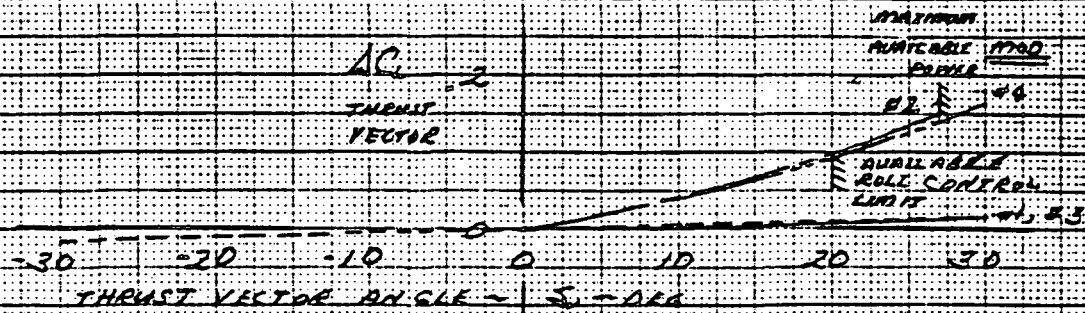 MAXIMUM
AVAILABLE MOD
POWER
ΔC_L .2
THRUST
VECTOR
#2 #4
AVAILABLE
ROLL CONTROL
LIMIT
0 #1, #3
-30 -20 -10 0 10 20 30
THRUST VECTOR ANGLE ~ - DEG